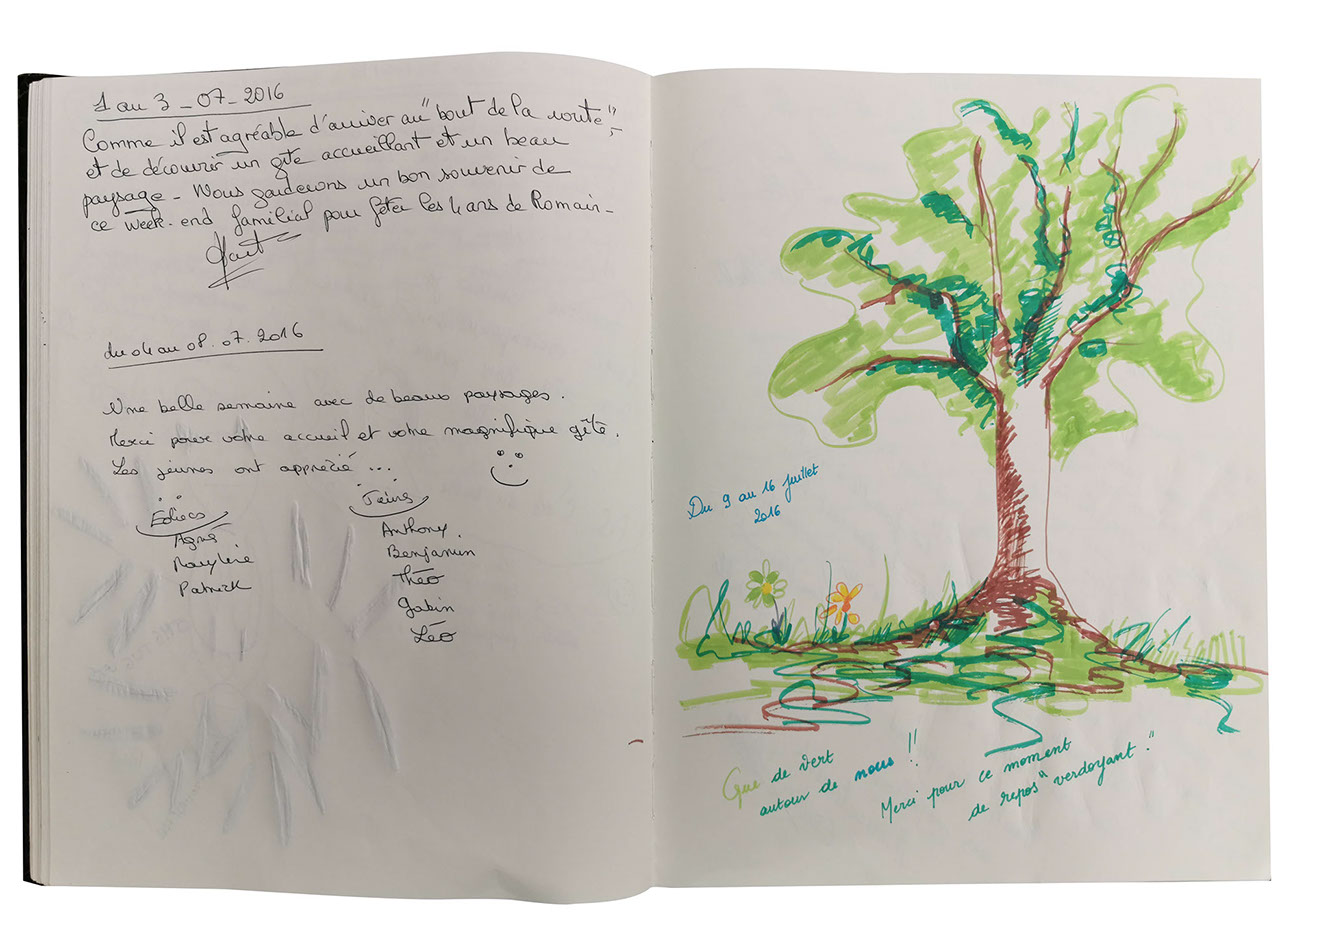 1 au 3 - 07 - 2016
Comme il est agréable d'arriver au "bout de la route",
et de découvrir un gîte accueillant et un beau
paysage - Nous garderons un bon souvenir de
ce week-end familial pour fêter les 4 ans de Romain -
du 04 au 08.07.2016
Une belle semaine avec de beaux paysages.
Merci pour votre accueil et votre magnifique gîte.
Les jeunes ont apprécié ...
Agnè
Maylène
Patrick
Jeunes
Anthony.
Benjamin
Théo
Gabin
Léo
Du 9 au 16 juillet
2016
Que de vert
autour de nous !!
Merci pour ce moment
de repos "verdoyant".